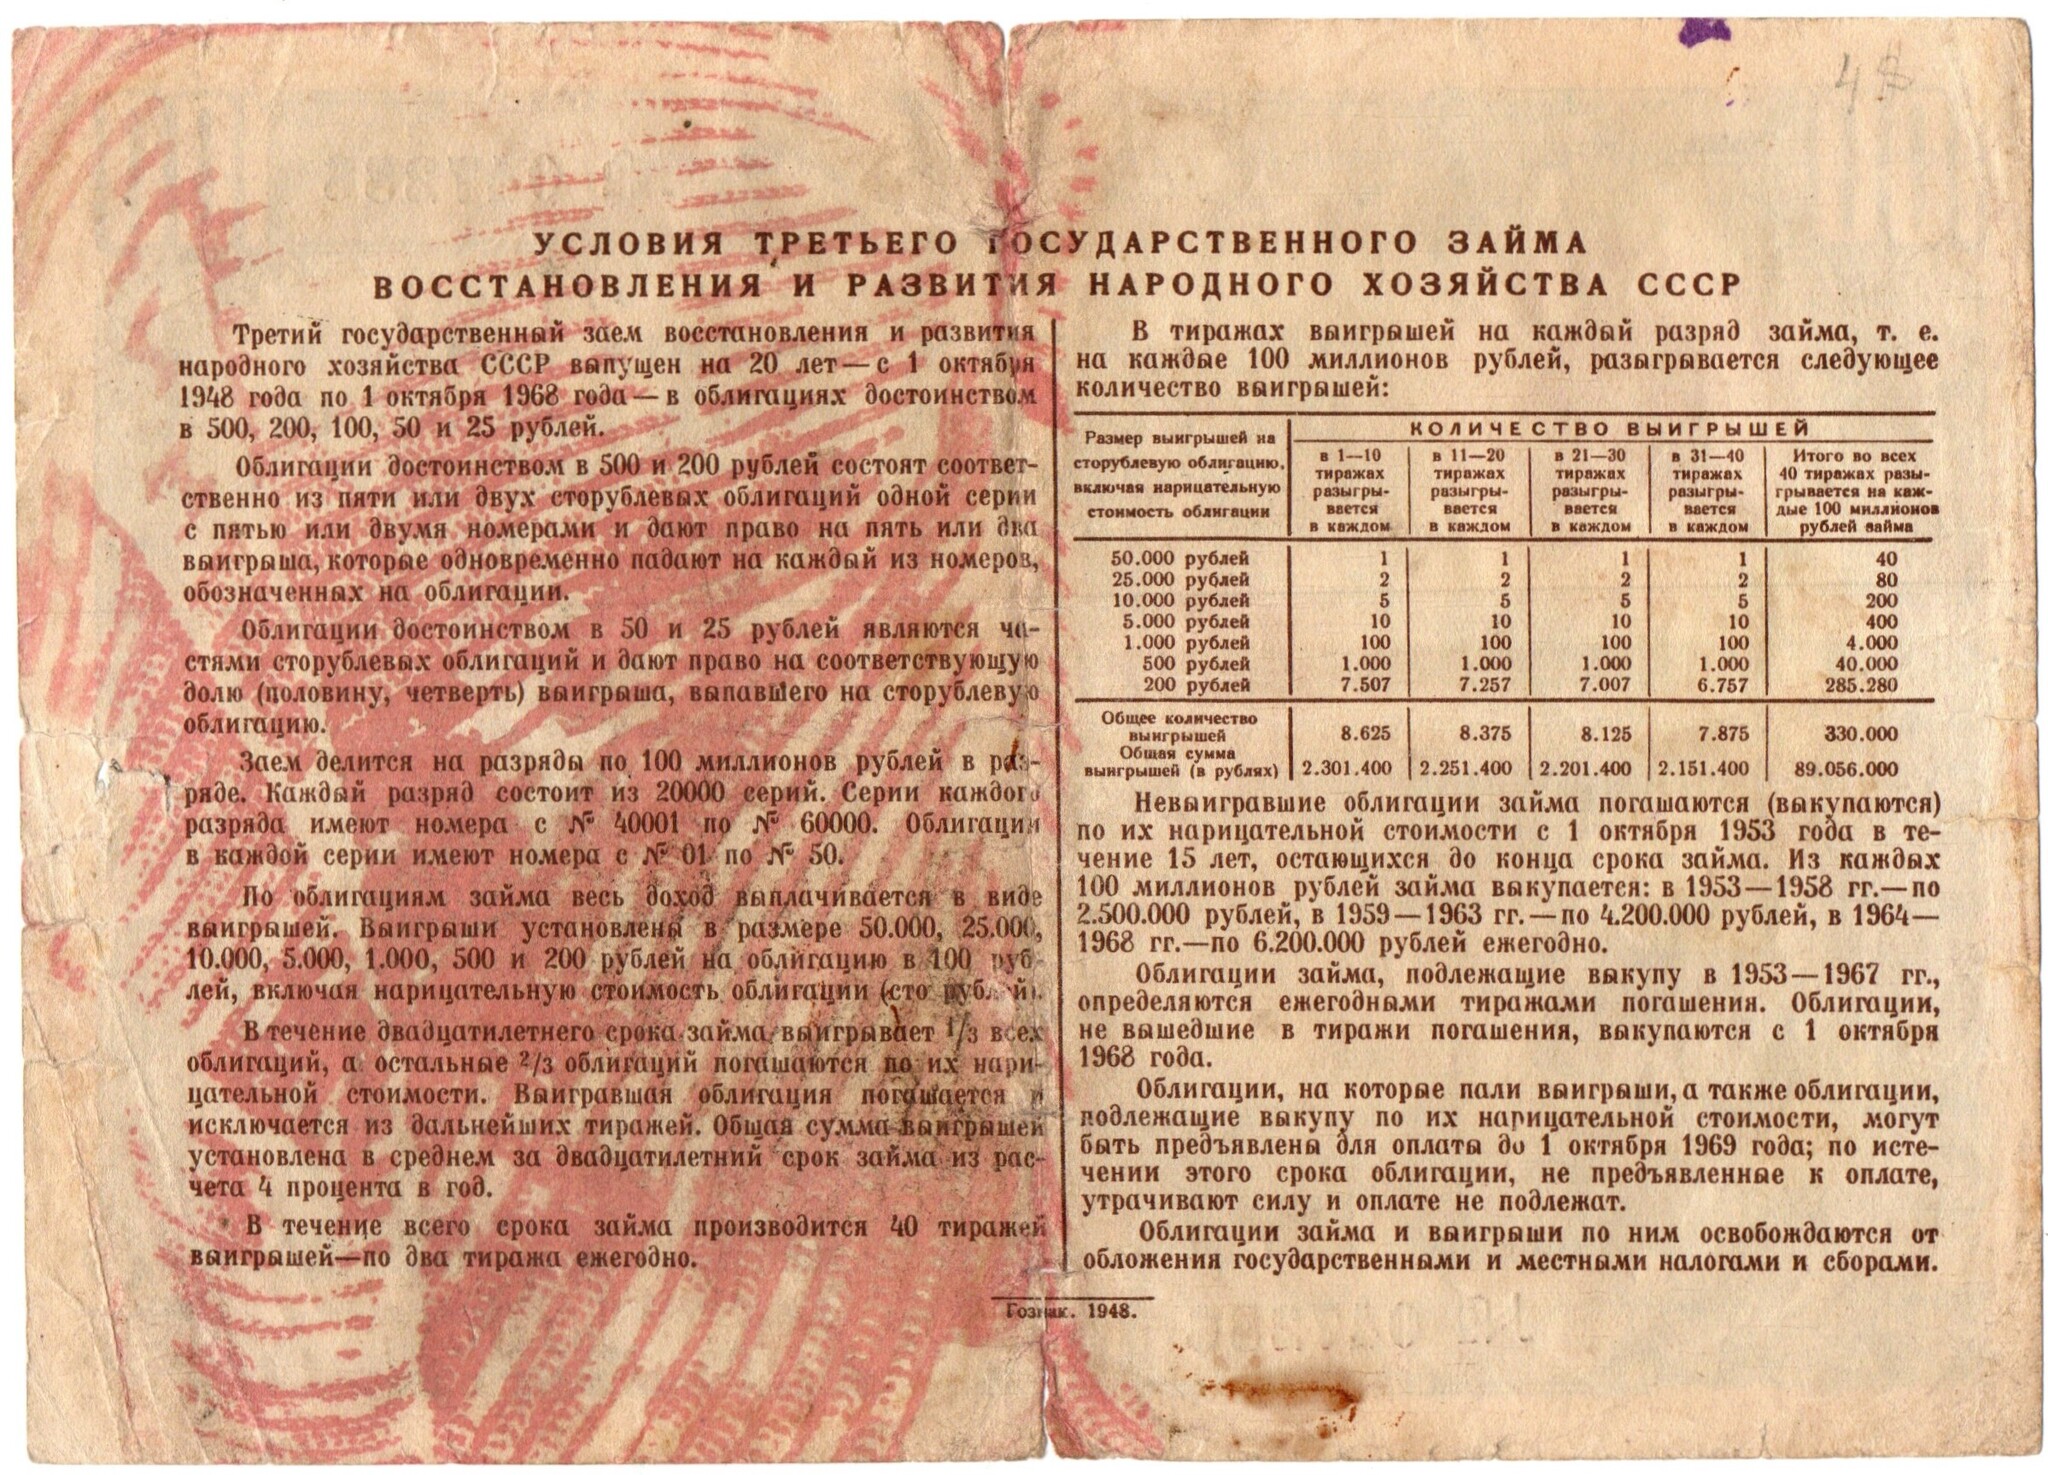 48
УСЛОВИЯ ТРЕТЬЕГО ГОСУДАРСТВЕННОГО ЗАЙМА
ВОССТАНОВЛЕНИЯ И РАЗВИТИЯ НАРОДНОГО ХОЗЯЙСТВА СССР
Третий государственный заем восстановления и развития
народного хозяйства СССР выпущен на 20 лет — с 1 октября
1948 года по 1 октября 1968 года — в облигациях достоинством
в 500, 200, 100, 50 и 25 рублей.
Облигации достоинством в 500 и 200 рублей состоят соответ-
ственно из пяти или двух сторублевых облигаций одной серии
с пятью или двумя номерами и дают право на пять или два
выигрыша, которые одновременно падают на каждый из номеров,
обозначенных на облигации.
Облигации достоинством в 50 и 25 рублей являются ча-
стями сторублевых облигаций и дают право на соответствующую
долю (половину, четверть) выигрыша, выпавшего на сторублевую
облигацию.
Заем делится на разряды по 100 миллионов рублей в раз-
ряде. Каждый разряд состоит из 20000 серий. Серии каждого
разряда имеют номера с № 40001 по № 60000. Облигации
в каждой серии имеют номера с № 01 по № 50.
По облигациям займа весь доход выплачивается в виде
выигрышей. Выигрыши установлены в размере 50.000, 25.000,
10.000, 5.000, 1.000, 500 и 200 рублей на облигацию в 100 руб-
лей, включая нарицательную стоимость облигации (сто рублей).
В течение двадцатилетнего срока займа выигрывает 1/3 всех
облигаций, а остальные 2/3 облигаций погашаются по их нари-
цательной стоимости. Выигравшая облигация погашается и
исключается из дальнейших тиражей. Общая сумма выигрышей
установлена в среднем за двадцатилетний срок займа из рас-
чета 4 процента в год.
В течение всего срока займа производится 40 тиражей
выигрышей—по два тиража ежегодно.
В тиражах выигрышей на каждый разряд займа, т. е.
на каждые 100 миллионов рублей, разыгрывается следующее
количество выигрышей:
Размер выигрышей на
сторублевую облигацию,
включая нарицательную
стоимость облигации
КОЛИЧЕСТВО ВЫИГРЫШЕЙ
в 1—10
тиражах
разыгры-
вается
в каждом
в 11—20
тиражах
разыгры-
вается
в каждом
в 21—30
тиражах
разыгры-
вается
в каждом
в 31—40
тиражах
разыгры-
вается
в каждом
Итого во всех
40 тиражах разы-
грывается на каж-
дые 100 миллионов
рублей займа
50.000 рублей 1 1 1 1 40
25.000 рублей 2 2 2 2 80
10.000 рублей 5 5 5 5 200
5.000 рублей 10 10 10 10 400
1.000 рублей 100 100 100 100 4.000
500 рублей 1.000 1.000 1.000 1.000 40.000
200 рублей 7.507 7.257 7.007 6.757 285.280
Общее количество
выигрышей 8.625 8.375 8.125 7.875 330.000
Общая сумма
выигрышей (в рублях) 2.301.400 2.251.400 2.201.400 2.151.400 89.056.000
Невыигравшие облигации займа погашаются (выкупаются)
по их нарицательной стоимости с 1 октября 1953 года в те-
чение 15 лет, остающихся до конца срока займа. Из каждых
100 миллионов рублей займа выкупается: в 1953—1958 гг.—по
2.500.000 рублей, в 1959—1963 гг.—по 4.200.000 рублей, в 1964—
1968 гг.—по 6.200.000 рублей ежегодно.
Облигации займа, подлежащие выкупу в 1953—1967 гг.,
определяются ежегодными тиражами погашения. Облигации,
не вышедшие в тиражи погашения, выкупаются с 1 октября
1968 года.
Облигации, на которые пали выигрыши, а также облигации,
подлежащие выкупу по их нарицательной стоимости, могут
быть предъявлены для оплаты до 1 октября 1969 года; по исте-
чении этого срока облигации, не предъявленные к оплате,
утрачивают силу и оплате не подлежат.
Облигации займа и выигрыши по ним освобождаются от
обложения государственными и местными налогами и сборами.
Гознак. 1948.